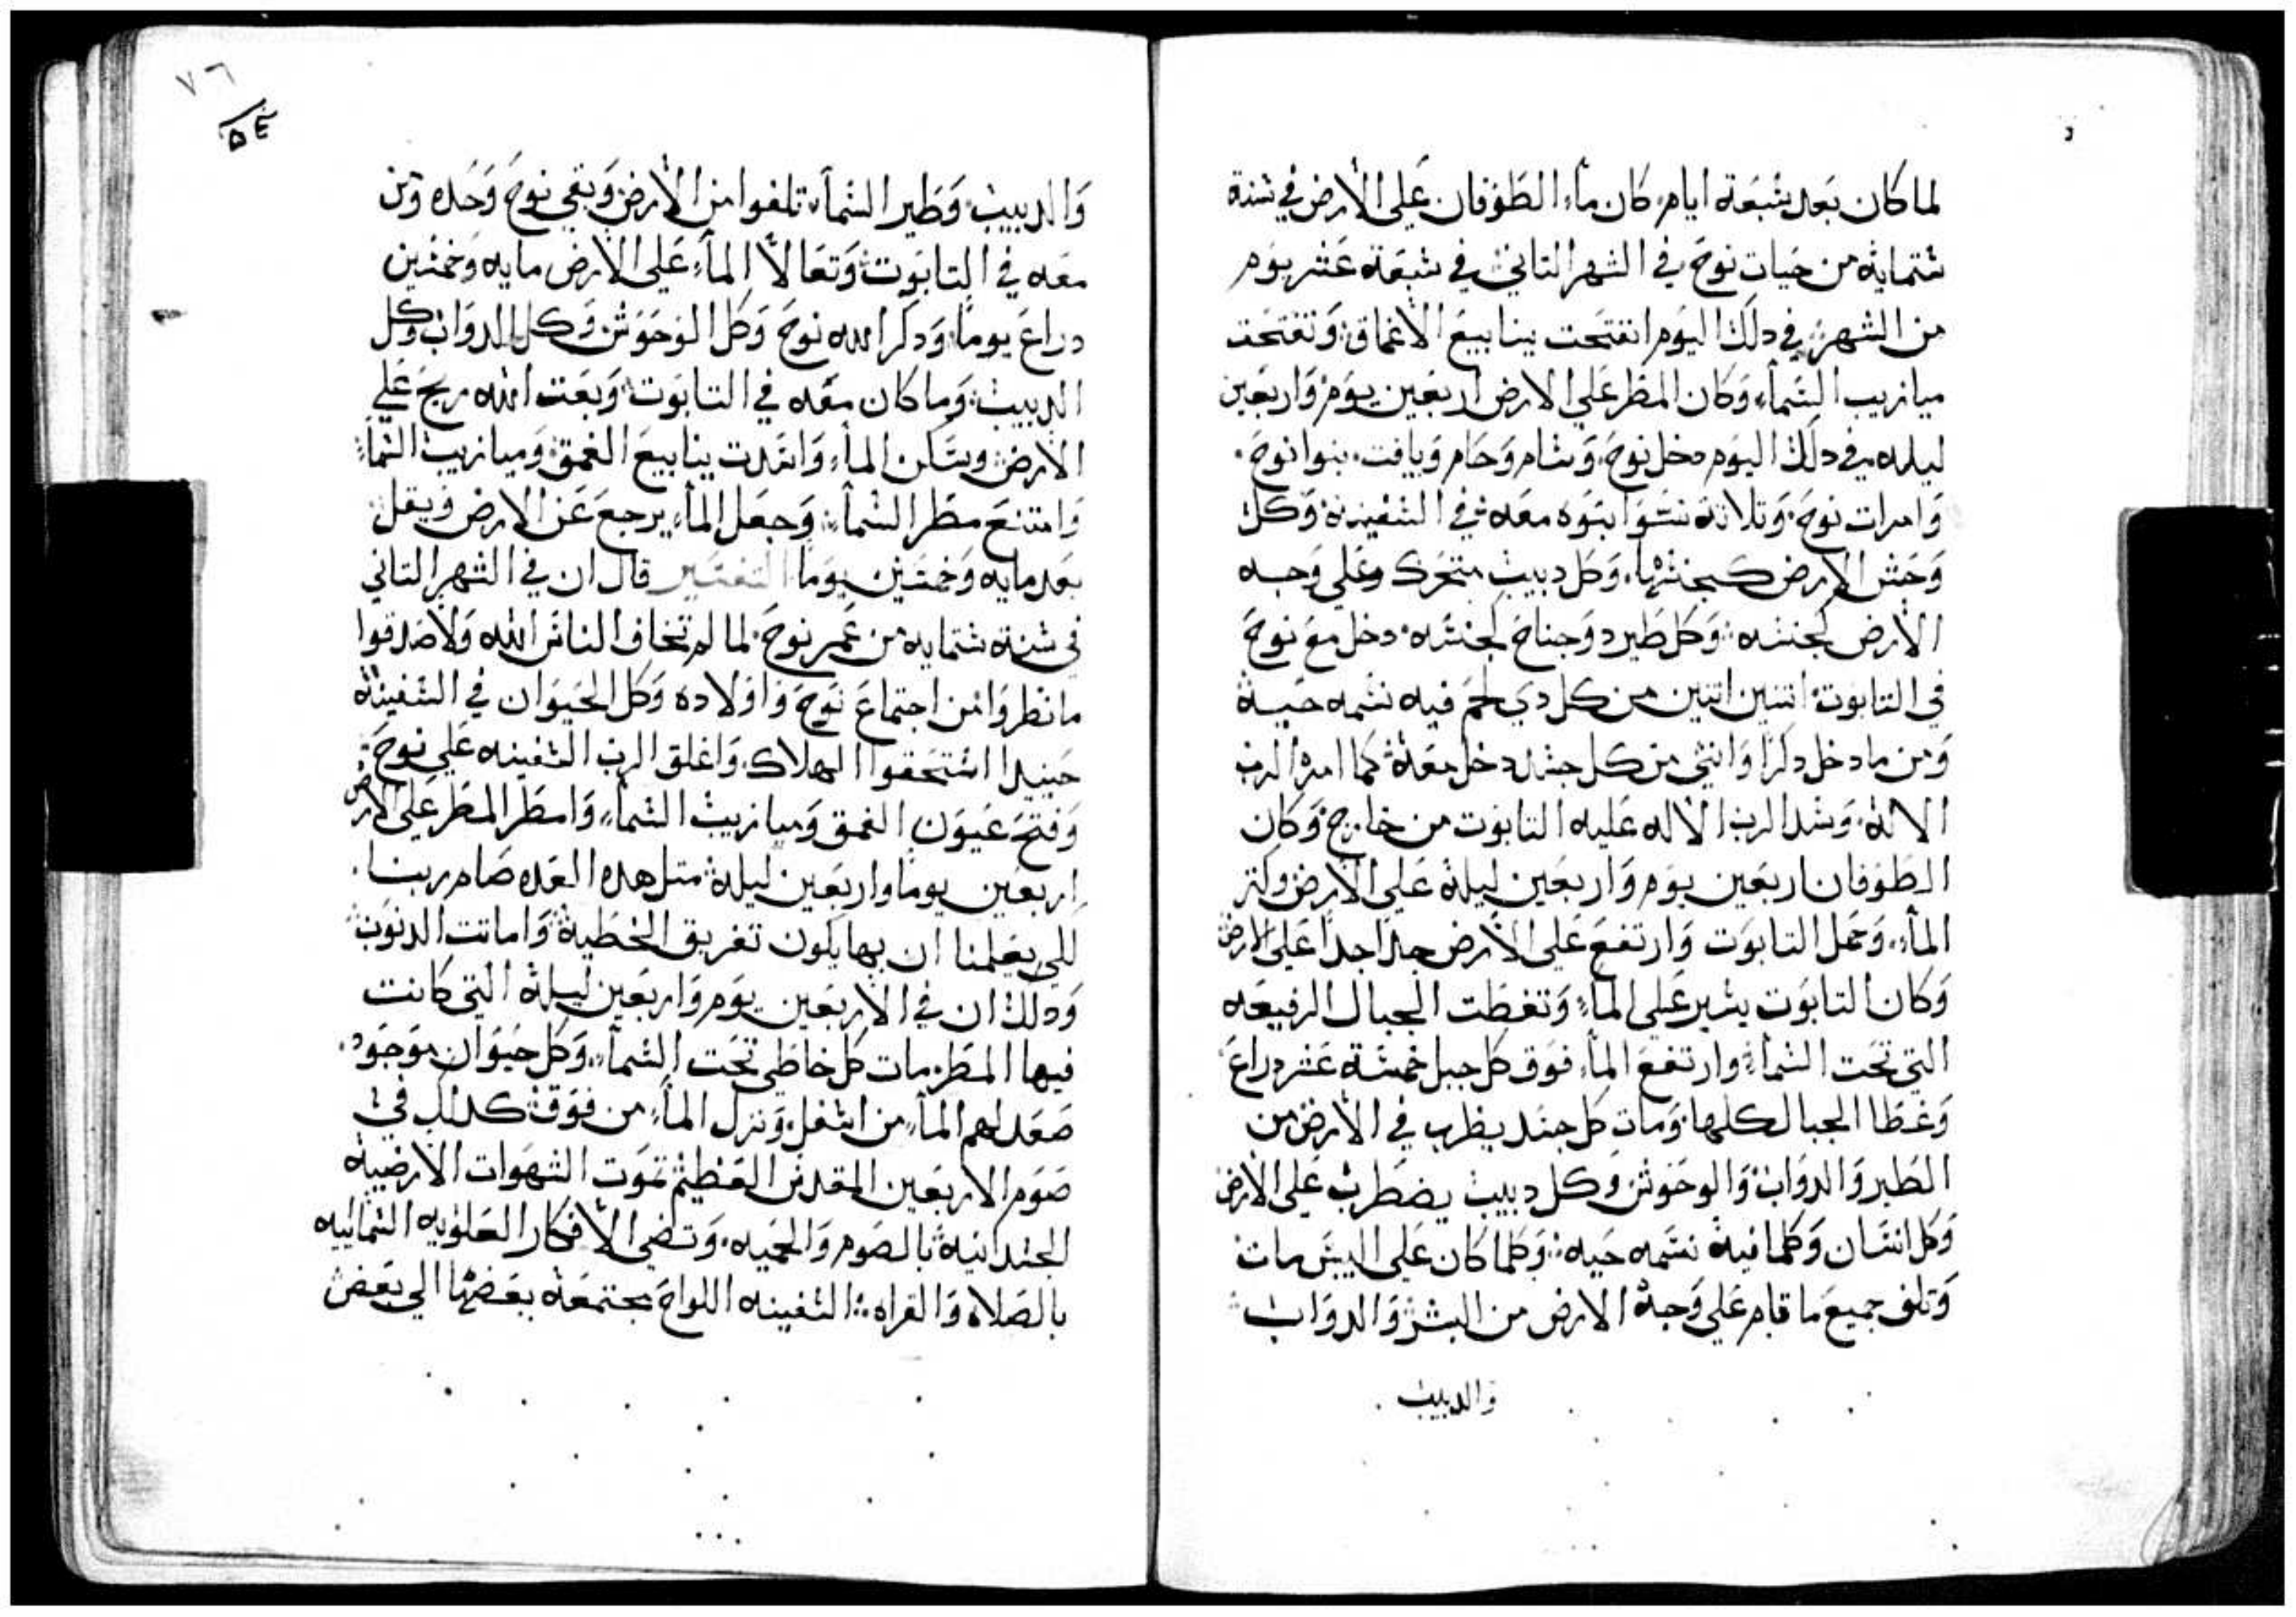 لما كان بعد شبعة ايام كان ماء الطوفان على الارض في شنة
شتماية من حيات نوح في الشهر التاني في شبعة عشر يوم
من الشهر في دلك اليوم انفتحت ينابيع الاغماق وتفتحت
ميازيب الشماء وكان المطر على الارض اربعين يوم واربعين
ليله في دلك اليوم دخل نوح وشام وحام ويافت بنوا نوح
وامرات نوح وتلاتة نشوا بنوه معه في الشفينة وكل
وحش الارض كجنشها وكل دبيب متحرك وعلى وجه
الارض لجنشه وكل طير دو جناح لجنشه دخل مع نوح
في التابوت اتنين اتنين من كل دي لحم فيه نشمه حيه
ومن ما دخل دكرا وانثي من كل جشد دخل معه كما امره الرب
الاله وشد الرب الاله عليه التابوت من خارج وكان
الطوفان اربعين يوم واربعين ليلة على الارض وكتر
الماء وحمل التابوت وارتفع على الارض جدا جدا على الارض
وكان التابوت يشير على الماء وتغطت الجبال الرفيعه
التي تحت الشماء وارتفع الماء فوق كل جبل خمشة عشر دراع
وغطا الجبال كلها ومات كل جشد يظرب في الارض من
الطير والدواب والوحوش وكل دبيب يضطرب على الارض
وكل انشان وكلما فيه نشمه حيه وكلما كان على اليبش مات
وتلف جميع ما قام على وجه الارض من البشر والدواب
والدبيب
٧٦
٥٤
والدبيب وطير الشماء تلفوا من الارض وبقي نوح وحده ومن
معه في التابوت وتعالا الماء على الارض مايه وخمشين
دراع يوما ودكر الله نوح وكل الوحوش وكل الدواب وكل
الدبيب وما كان معه في التابوت وبعت الله ريح علي
الارض وشكن الماء وانشدت ينابيع الغمق وميازيب الشماء
وامتنع مطر الشماء وجعل الماء يرجع عن الارض ويقل
بعد مايه وخمشين يوما التفشير قال ان في الشهر التاني
في شنة شتمايه من عمر نوح لما لم تخاف الناش الله ولا صدقوا
ما نظروا من اجتماع نوح واولاده وكل الحيوان في الشفينة
حينيدا اشتحقوا الهلاك واغلق الرب الشفينه علي نوح
وفتح عيون الغمق وميازيب الشماء وامطر المطر على الارض
اربعين يوما واربعين ليلة متل هده العده صام ربنا
للي يعلمنا ان بها يكون تغريق الخطية واماتت الدنوب
ودلك ان في الاربعين يوم واربعين ليلة التي كانت
فيها المطر مات كل خاطي تحت الشماء وكل حيوان موجود
صعد لهم الماء من اشفل ونزل الماء من فوق كدلك في
صوم الاربعين المقدش العظيم تموت الشهوات الارضية
الجشدانية بالصوم والحميه وتضي الافكار العلويه الشمائيه
بالصلاه والقراه الشفينه اللواح مجتمعة بعضها الي بعض